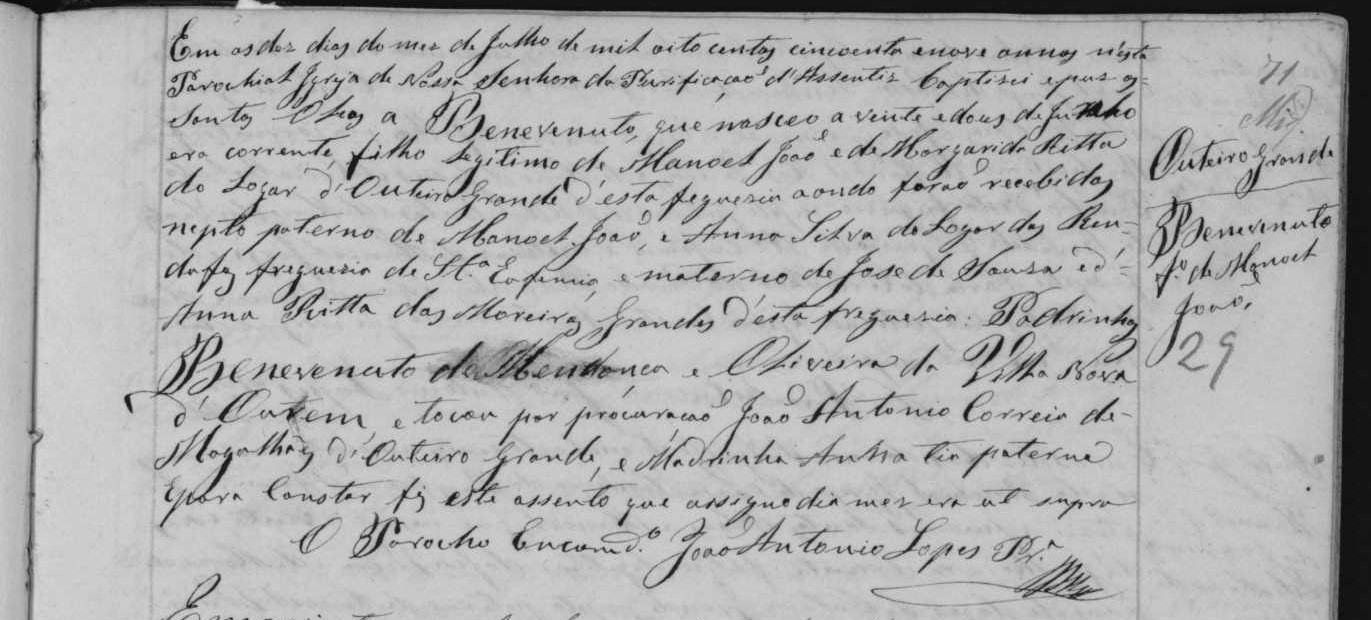 Em os dez dias do mez de Julho de mil oito centos cincoenta e nove annos n'esta
Parochial Igreja de Nossa Senhora da Purificação d'Assentiz Baptizei e puz os
Santos Oleos a Benevenuto, que nasceo a vinte e dous de Junho
era corrente, filho legitimo de Manoel João e de Margarida Ritta
do Logar d'Outeiro Grande d'esta freguezia aonde forão recebidos
nepto paterno de Manoel João, e Anna Silva do Logar das
freguezia de Stª Eofemia, e materno de Jose de Sousa e d'
Anna Ritta das Moreiras Grandes d'esta freguezia. Padrinhos
Benevenuto de Mendonça e Oliveira da Villa Nova
d'Ourem, e tocou por procuração João Antonio Correia de
Magalhães d'Outeiro Grande, e Madrinha Anna tia paterna
E para Constar fiz este assento que assigno dia mez era ut supra
O Parocho Encomd.º João Antonio Lopes Pr.ª
71
Outeiro Grande
Benevenuto
f.º de Manoel
João,
29